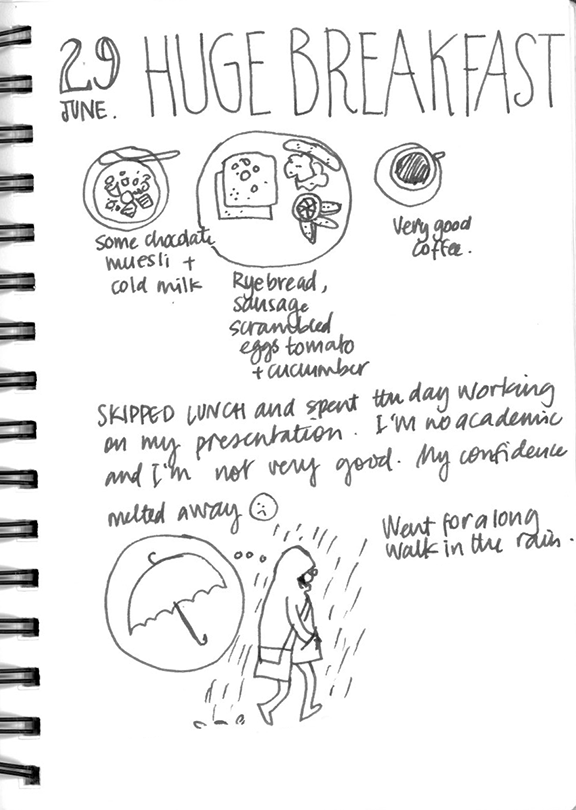 29
JUNE.
HUGE BREAKFAST
some chocolate
muesli +
cold milk
Ryebread,
sausage
scrambled
eggs tomato
+ cucumber
Very good
coffee.
SKIPPED LUNCH and spent the day working
on my presentation. I'm no academic
and I'm not very good. My confidence
melted away
Went for a long
walk in the rain.